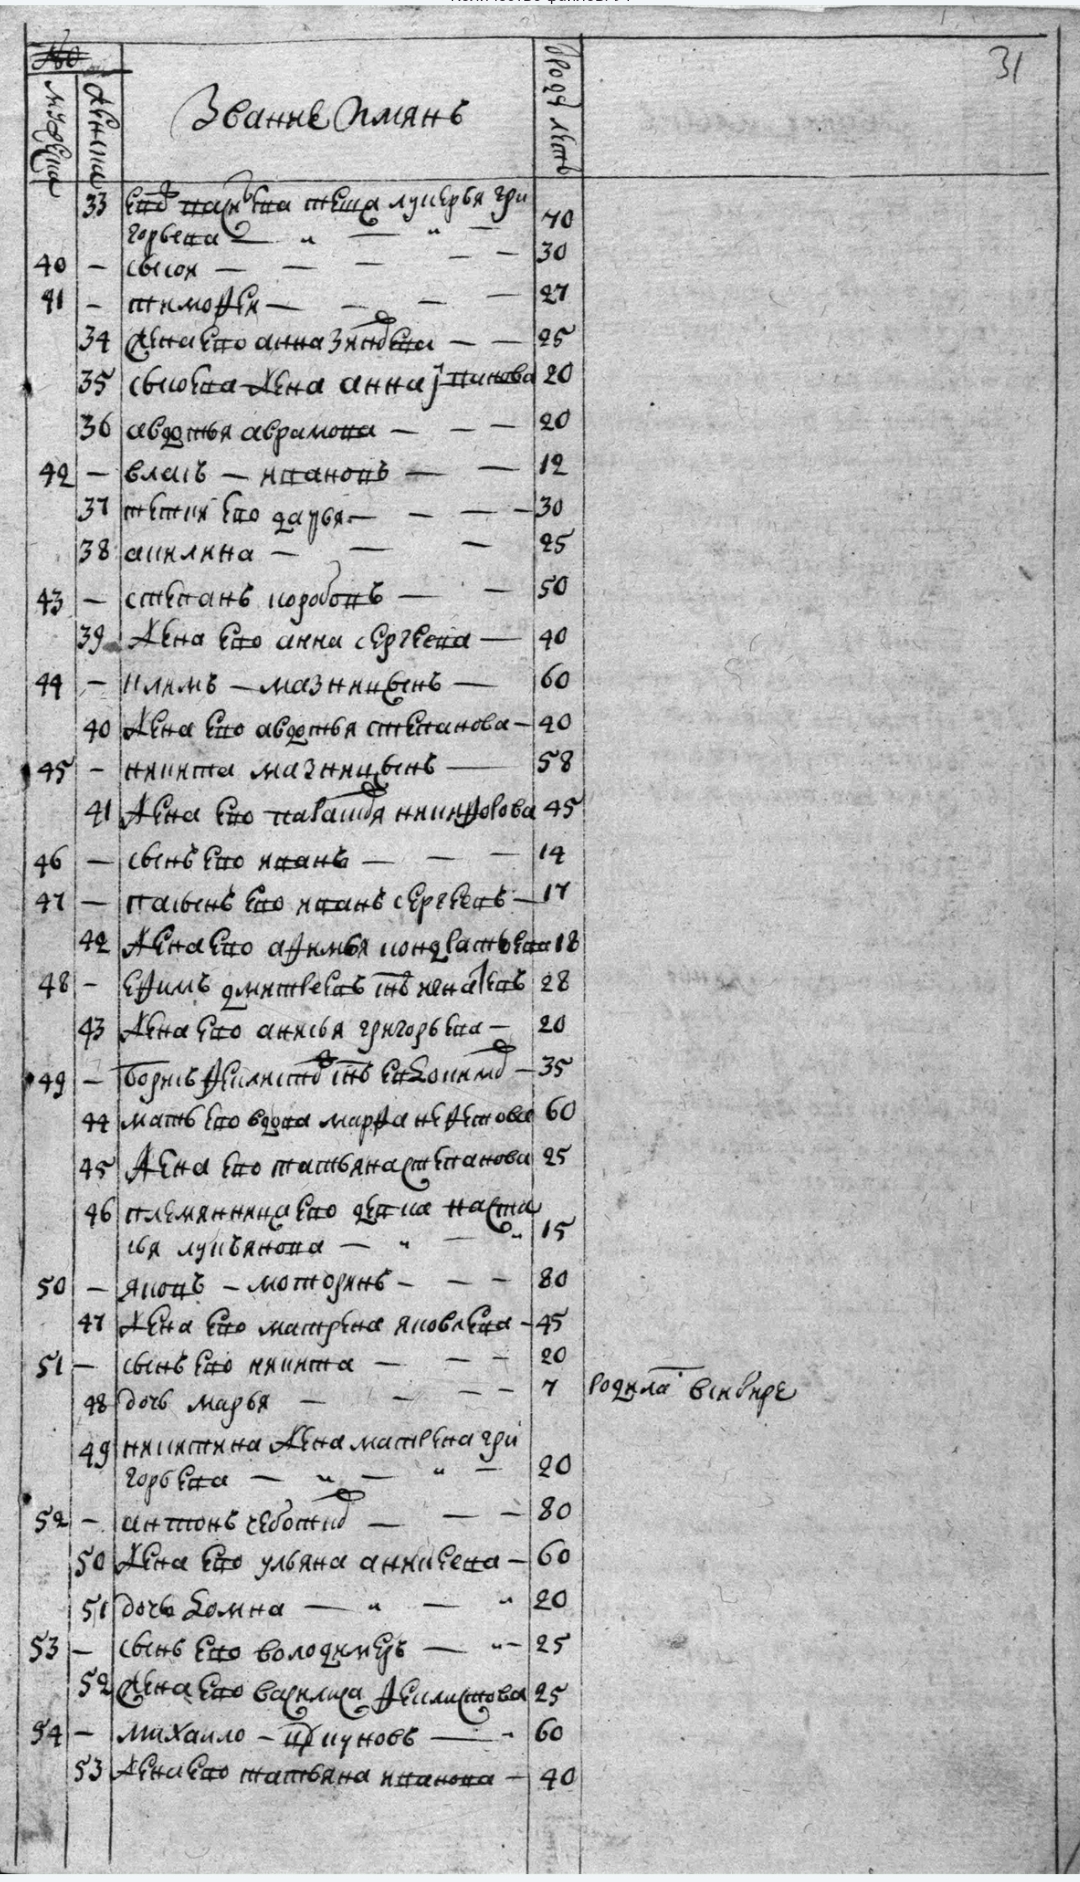 31
№
мужеска
женска
Звание Имянъ
33 теща лукерья гри
горьева — „ — „ — 70
40 — сысоя — — — — 30
41 — тимофея — — — 27
34 жена ево анна — — 25
35 сысоева жена анна 20
36 авдотья аврамова — — — 20
42 — власъ — ивановъ — — 12
37 ево дарья — — — 30
38 акилина — — — 25
43 — степанъ коробовъ — — 50
39 жена ево анна сергеева — 40
44 — климъ — мазницынъ — 60
40 жена ево авдотья степанова — 40
45 — никита мазницынъ — 58
41 жена ево 45
46 — сынъ ево иванъ — — — 14
47 — пасынъ ево иванъ сергеевъ — 17
42 жена ево афимья кондратьева 18
48 — ефимъ дмитреевъ 28
43 жена ево анисья григорьева — 20
49 — борисъ — 35
44 мать ево вдова марфа нефетова 60
45 жена ево татьяна степанова 25
46 племянница ево девка наста
сья лукьянова — „ — „ 15
50 — яковъ — моторинъ — — — 80
47 жена ево матрена яковлева — 45
51 — сынъ ево никита — — — 20
48 дочь марья — — — — 7 родила в сибире
49 никитина жена матрена гри
горьева — „ — „ — 20
52 — антонъ — — — 80
50 жена ево ульяна аникеева — 60
51 дочь домна — „ — „ 20
53 — сынъ ево володимеръ — „ — 25
52 жена ево василиса феклистова 25
54 — михаило — — 60
53 жена ево татьяна иванова — 40